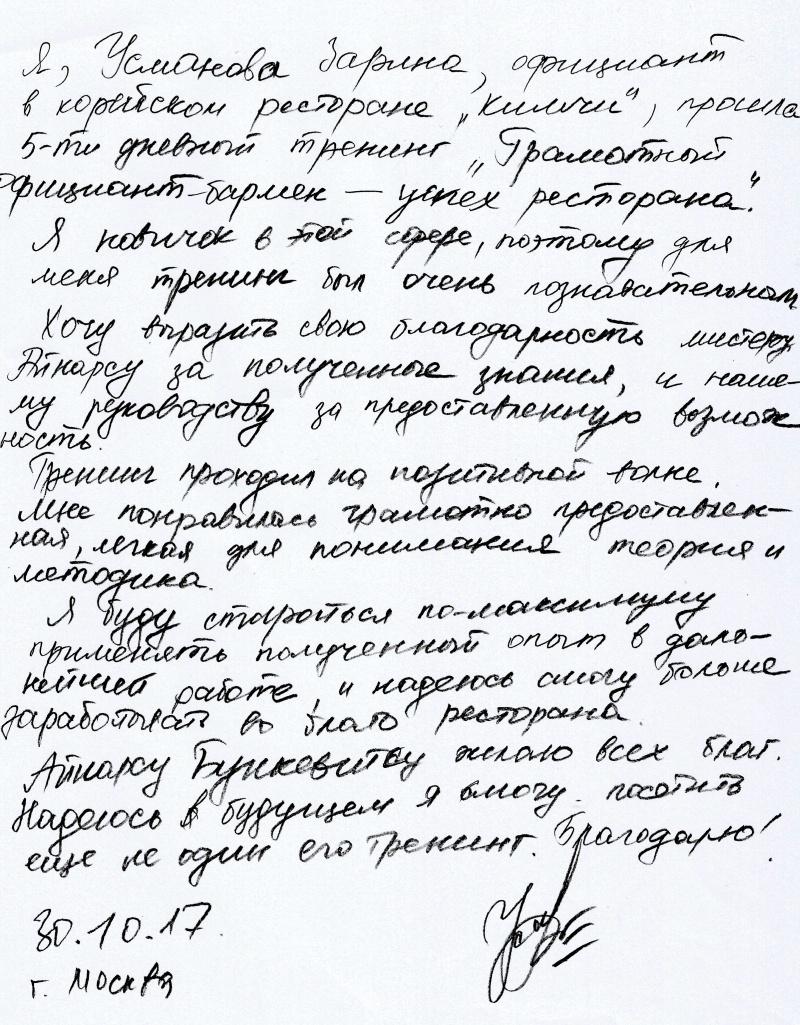 Я, Усманова Зарина, официант
в корейском ресторане „Кимчи", прошла
5-ти дневный тренинг „Грамотный
официант-бармен — успех ресторана".
Я новичок в этой сфере, поэтому для
меня тренинг был очень познавательным
Хочу выразить свою благодарность мистеру
Айнарсу за полученные знания, и наше-
му руководству за предоставленную возмож
ность.
Тренинг проходил на позитивной волне.
Мне понравилась грамотно предоставлен-
ная, легкая для понимания теория и
методика.
Я буду стараться по-максимуму
применять полученный опыт в даль-
нейшей работе, и надеюсь смогу больше
зарабатывать во благо ресторана.
Айнарсу Бункевитсу желаю всех благ.
Надеюсь в будущем я смогу посетить
еще не один его тренинг. Благодарю!
30.10.17.
г. Москва